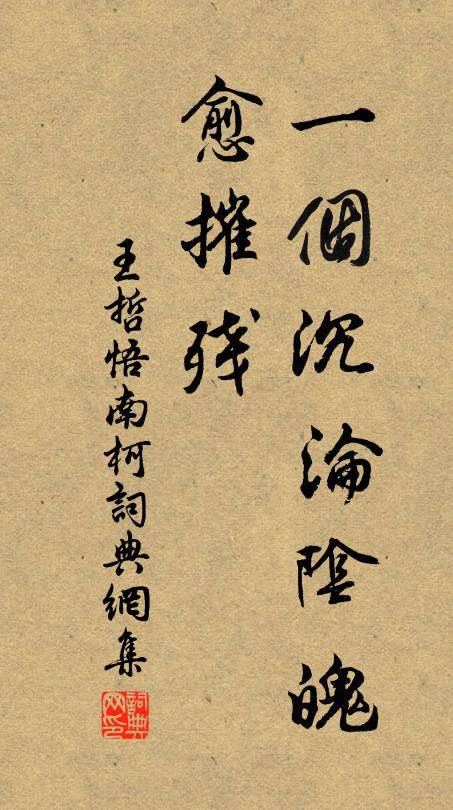 一個沉淪陰魄
愈摧残
王哲悟南柯詞典網集
詞典网印